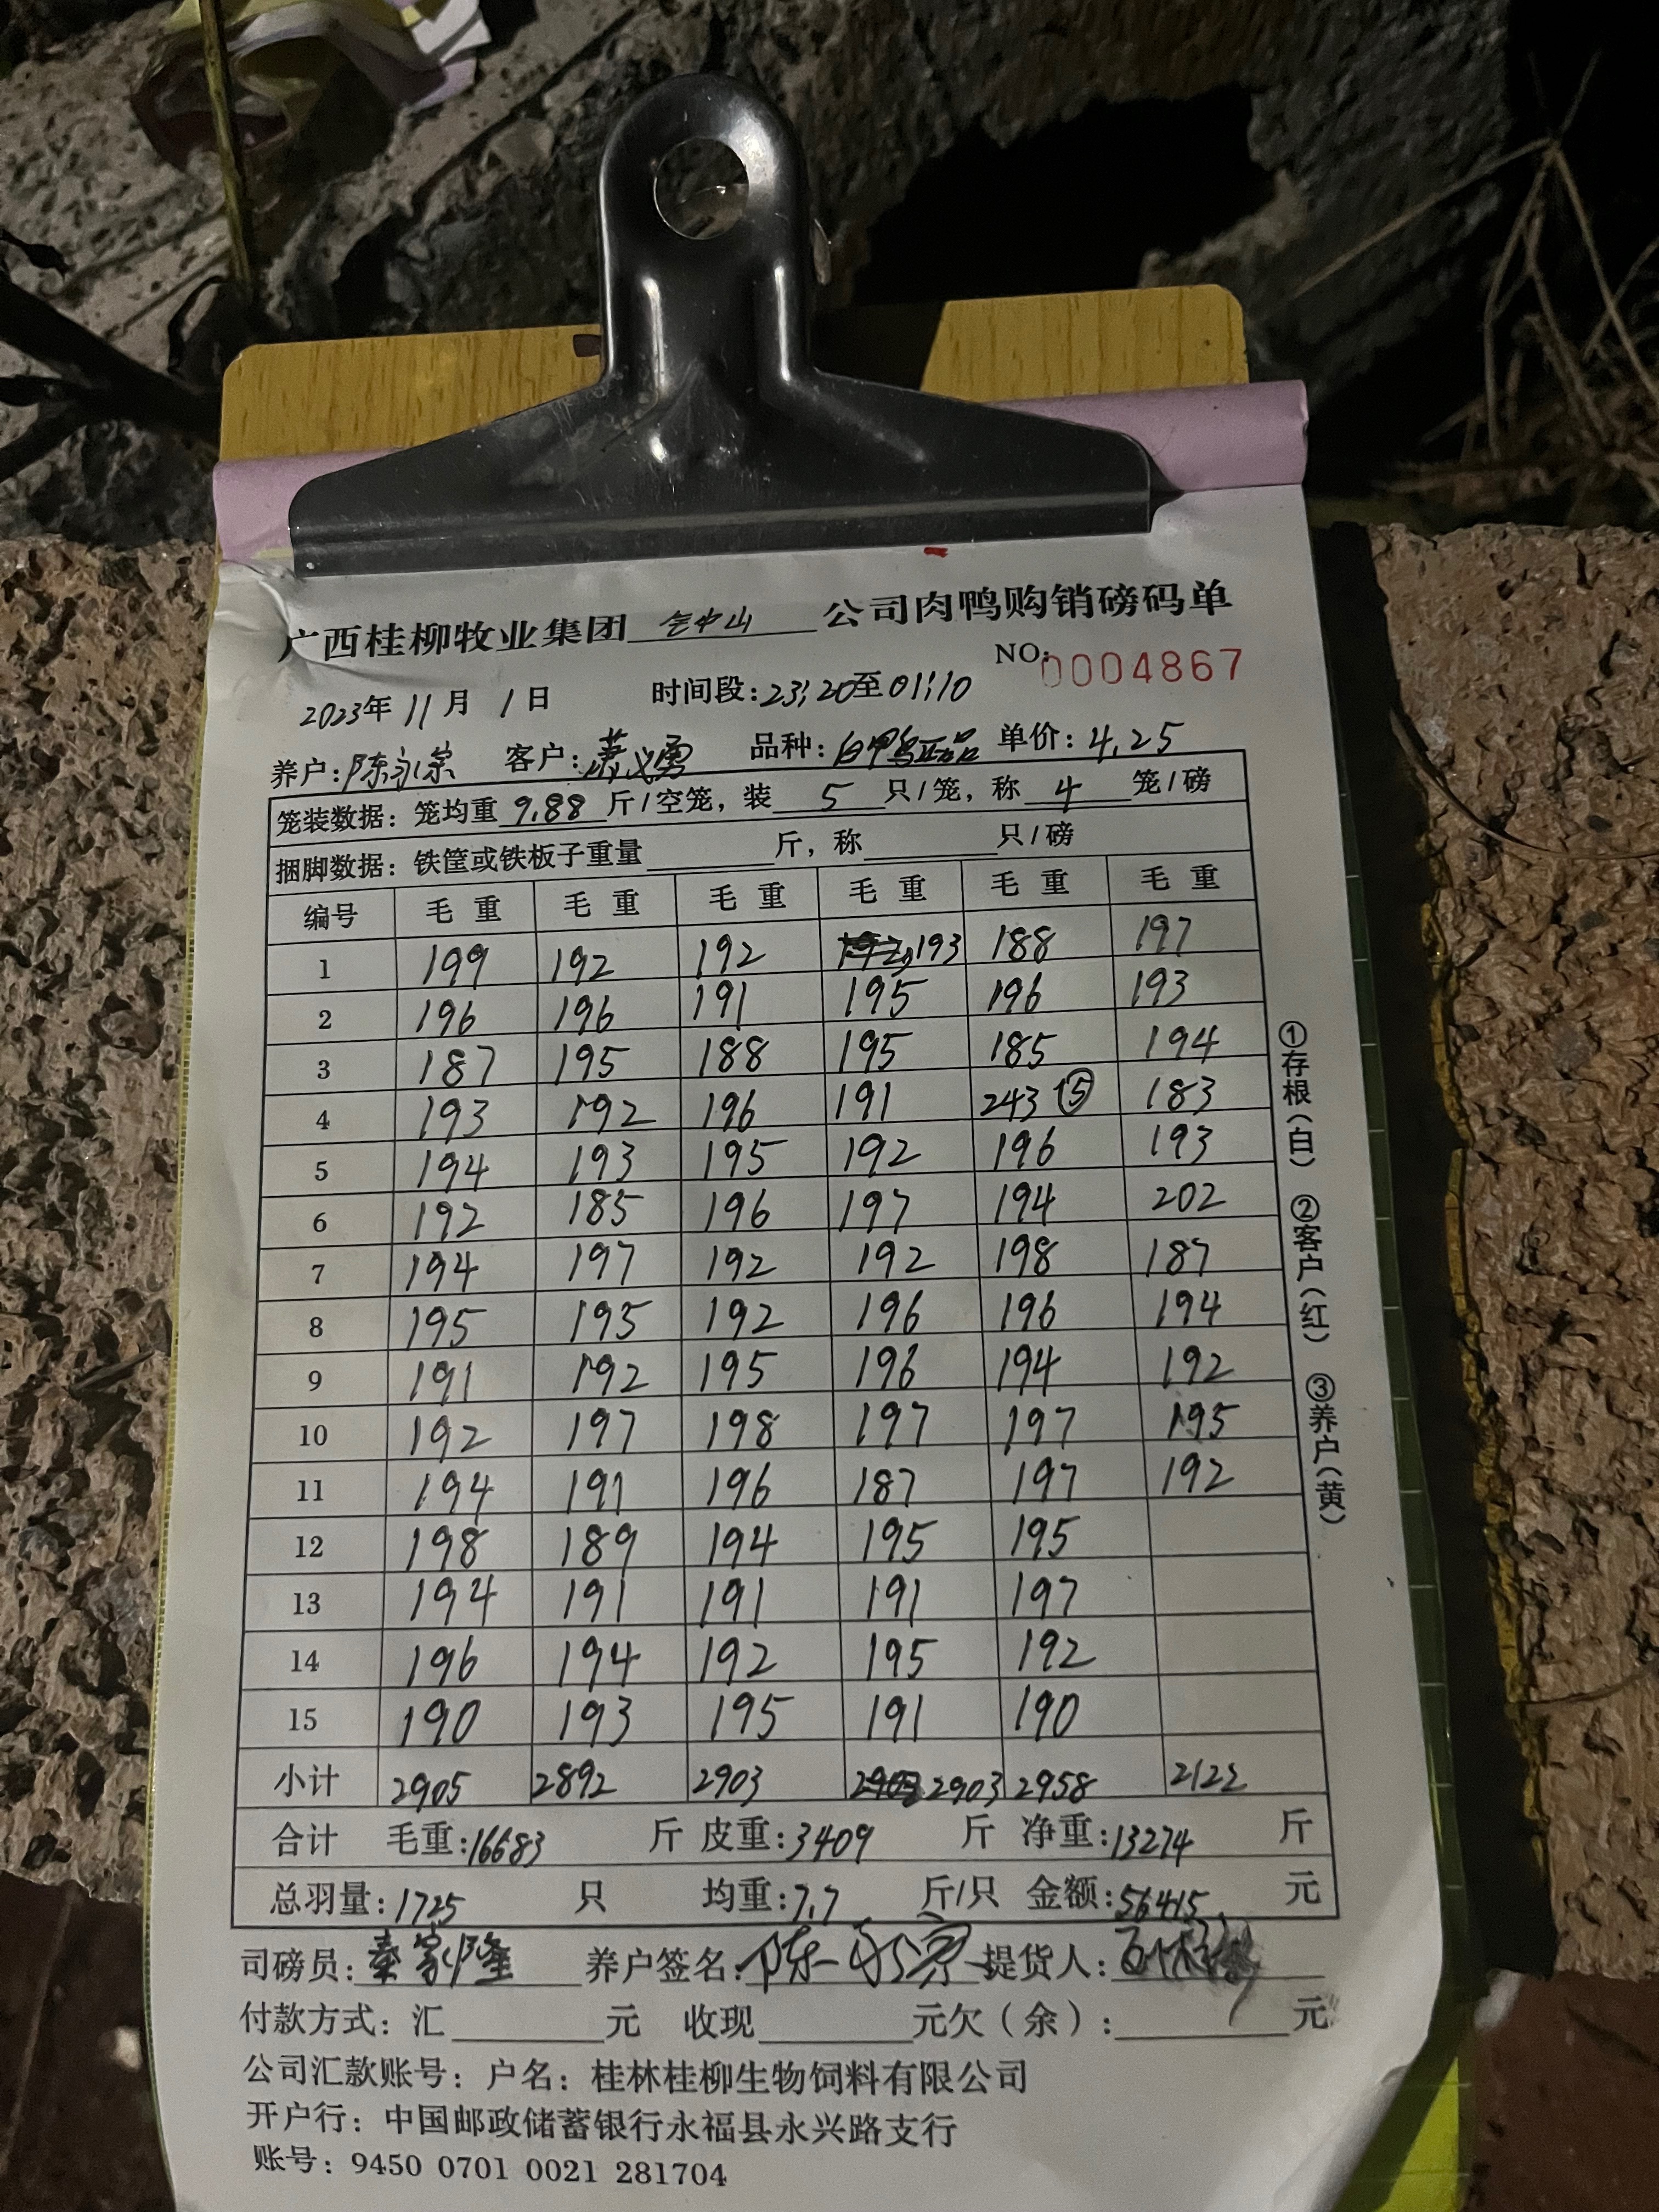 广西桂柳牧业集团 全中山 公司肉鸭购销磅码单
NO:0004867
2023年 11月 1日 时间段:23:20至01:10
养户:陈永宗 客户:萧义勇 品种:白鸭正品 单价:4.25
笼装数据：笼均重9.88斤/空笼，装 5 只/笼，称 4 笼/磅
捆脚数据：铁筐或铁板子重量 斤，称 只/磅
编号 毛重 毛重 毛重 毛重 毛重 毛重
1 199 192 192 193 188 197
2 196 196 191 195 196 193
3 187 195 188 195 185 194
4 193 192 196 191 243 ⑤ 183
5 194 193 195 192 196 193
6 192 185 196 197 194 202
7 194 197 192 192 198 187
8 195 195 192 196 196 194
9 191 192 195 196 194 192
10 192 197 198 197 197 195
11 194 191 196 187 197 192
12 198 189 194 195 195
13 194 191 191 191 197
14 196 194 192 195 192
15 190 193 195 191 190
小计 2905 2892 2903 2903 2958 2122
合计 毛重:16683 斤 皮重:3409 斤 净重:13274 斤
总羽量:1725 只 均重:7.7 斤/只 金额:56415 元
司磅员:秦家隆 养户签名:陈永宗 提货人:
付款方式：汇 元 收现 元欠（余）: 元
公司汇款账号：户名：桂林桂柳生物饲料有限公司
开户行：中国邮政储蓄银行永福县永兴路支行
账号：9450 0701 0021 281704
①存根（白） ②客户（红） ③养户（黄）